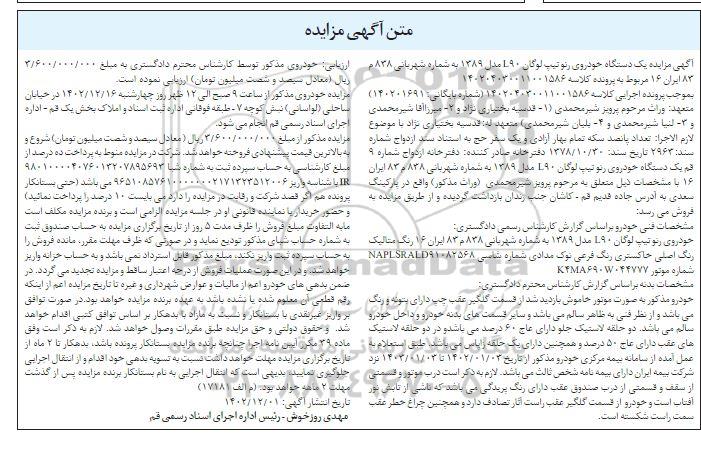 متن آگهی مزایده
آگهی مزایده یک دستگاه خودروی رنو تیپ لوگان L۹۰ مدل ۱۳۸۹ به شماره شهربانی ۸۳۸ م
۸۳ ایران ۱۶ مربوط به پرونده کلاسه ۱۴۰۲۰۴۰۳۰۰۱۱۰۰۱۵۸۶
بموجب پرونده اجرایی کلاسه ۱۴۰۲۰۴۰۳۰۰۱۱۰۰۱۵۸۶ (شماره بایگانی: ۱۴۰۲۰۱۶۹۱)
متعهد: وراث مرحوم پرویز شیرمحمدی (۱- قدسیه بختیاری نژاد و ۲- میرزاآقا شیرمحمدی
و ۳- لنیا شیرمحمدی و ۴- بلیان شیرمحمدی) متعهد له: قدسیه بختیاری نژاد با موضوع
لازم الاجرا: تعداد پانصد سکه تمام بهار آزادی و یک سفر حج به استناد سند ازدواج شماره
سند: ۲۹۶۳ تاریخ سند: ۱۳۷۸/۱۰/۳۰ دفترخانه صادر کننده: دفترخانه ازدواج شماره ۹
قم یک دستگاه خودروی رنو تیپ لوگان L۹۰ مدل ۱۳۸۹ به شماره شهربانی ۸۳۸ م ۸۳ ایران
۱۶ با مشخصات ذیل متعلق به مرحوم پرویز شیرمحمدی (وراث مذکور) واقع در پارکینگ
سعدی به آدرس جاده قدیم قم - کاشان جنب زندان بازداشت گردیده و از طریق مزایده به
فروش می رسد:
مشخصات فنی خودرو براساس گزارش کارشناس رسمی دادگستری:
خودروی رنو تیپ لوگان L۹۰ مدل ۱۳۸۹ به شماره شهربانی ۸۳۸ م ۸۳ ایران ۱۶ رنگ متالیک
رنگ اصلی خاکستری رنگ فرعی نوک مدادی شماره شاسی NAPLSRALD۹۱۰۸۲۵۶۸
شماره موتور K۴MA۶۹۰W۰۴۴۷۷۷
مشخصات بدنه براساس گزارش کارشناس محترم دادگستری:
خودرو مذکور به صورت موتور خاموش بازدید شد از قسمت گلگیر عقب چپ دارای بتونه و رنگ
می باشد و از نظر فنی به ظاهر سالم می باشد و سایر قسمت های بدنه خودرو و داخل خودرو
سالم می باشد. دو حلقه لاستیک جلو دارای عاج ۶۰ درصد می باشد و در دو حلقه لاستیک
های عقب دارای عاج ۵۰ درصد و همچنین دارای یک حلقه زاپاس می باشد. طبق استعلام به
عمل آمده از سامانه بیمه مرکزی خودرو مذکور از تاریخ ۱۴۰۲/۰۱/۰۳ تا ۱۴۰۳/۰۱/۰۳ نزد
شرکت بیمه ایران دارای بیمه نامه شخص ثالث می باشد. لازم به ذکر است درب موتور و قسمتی
از سقف و قسمتی از درب صندوق عقب دارای رنگ پریدگی می باشد که ناشی از تابش نور
آفتاب است و خودرو از قسمت گلگیر عقب راست آثار تصادف دارد و همچنین چراغ خطر عقب
سمت راست شکسته است.
ارزیابی: خودروی مذکور توسط کارشناس محترم دادگستری به مبلغ ۳/۶۰۰/۰۰۰/۰۰۰
ریال (معادل سیصد و شصت میلیون تومان) ارزیابی نموده است.
مزایده خودروی مذکور از ساعت ۹ صبح الی ۱۲ ظهر روز چهارشنبه ۱۴۰۲/۱۲/۱۶ در خیابان
ساحلی (لواسانی) نبش کوچه ۷- طبقه فوقانی اداره ثبت اسناد و املاک بخش یک قم - اداره
اجرای اسناد رسمی قم انجام می شود.
مزایده مذکور از مبلغ ۳/۶۰۰/۰۰۰/۰۰۰ ریال (معادل سیصد و شصت میلیون تومان) شروع و
به بالاترین قیمت پیشنهادی فروخته خواهد شد. شرکت در مزایده منوط به پرداخت ده درصد از
مبلغ کارشناسی به حساب سپرده ثبت به شماره شبا ۹۸۰۱۰۰۰۰۴۰۷۶۰۱۳۲۰۷۸۹۵۶۹۳
IR با شناسه واریز ۹۶۵۱۰۸۵۷۶۱۰۰۰۰۰۰۰۲۱۷۱۳۲۳۵۱۲۰۰۶ می باشد (حتی بستانکار
پرونده هم اگر قصد شرکت و رقابت در مزایده را دارد می بایست ۱۰ درصد را پرداخت نمائید)
و حضور خریدار یا نماینده قانونی او در جلسه مزایده الزامی است و برنده مزایده مکلف است
مابه التفاوت مبلغ فروش را ظرف مدت ۵ روز از تاریخ برگزاری مزایده به حساب صندوق ثبت
به شماره حساب شبای مذکور تودیع نماید و در صورتی که ظرف مهلت مقرر، مانده فروش را
به حساب سپرده ثبت واریز نکند، مبلغ مذکور قابل استرداد نمی باشد و به حساب خزانه واریز
خواهد شد. و در این صورت عملیات فروش از درجه اعتبار ساقط و مزایده تجدید می گردد. در
ضمن بدهی های خودرو اعم از مالیات و عوارض شهرداری و غیره تا تاریخ مزایده اعم از اینکه
رقم قطعی آن معلوم شده یا نشده باشد به عهده برنده مزایده خواهد بود. در صورت توافق
بر واریز غیرنقدی با بستانکار و نسبت به مازاد با بدهکار بر اساس توافق کتبی اقدام خواهد
شد. و حقوق دولتی و حق مزایده طبق مقررات وصول خواهد شد. لازم به ذکر است وفق
ماده ۳۹ مکرر آیین نامه اجرا چنانچه برنده مزایده بستانکار پرونده باشد، بدهکار تا ۲ ماه از
تاریخ برگزاری مزایده مهلت خواهد داشت نسبت به تسویه بدهی خود اقدام و از انتقال اجرایی
جلوگیری نمایید. بدیهی است که انتقال اجرایی به نام بستانکار برنده مزایده پس از گذشت
مهلت ۲ ماهه خواهد بود. (م الف ۱۷۱۸۱)
تاریخ انتشار آگهی: ۱۴۰۲/۱۲/۰۱
مهدی روزخوش - رئیس اداره اجرای اسناد رسمی قم